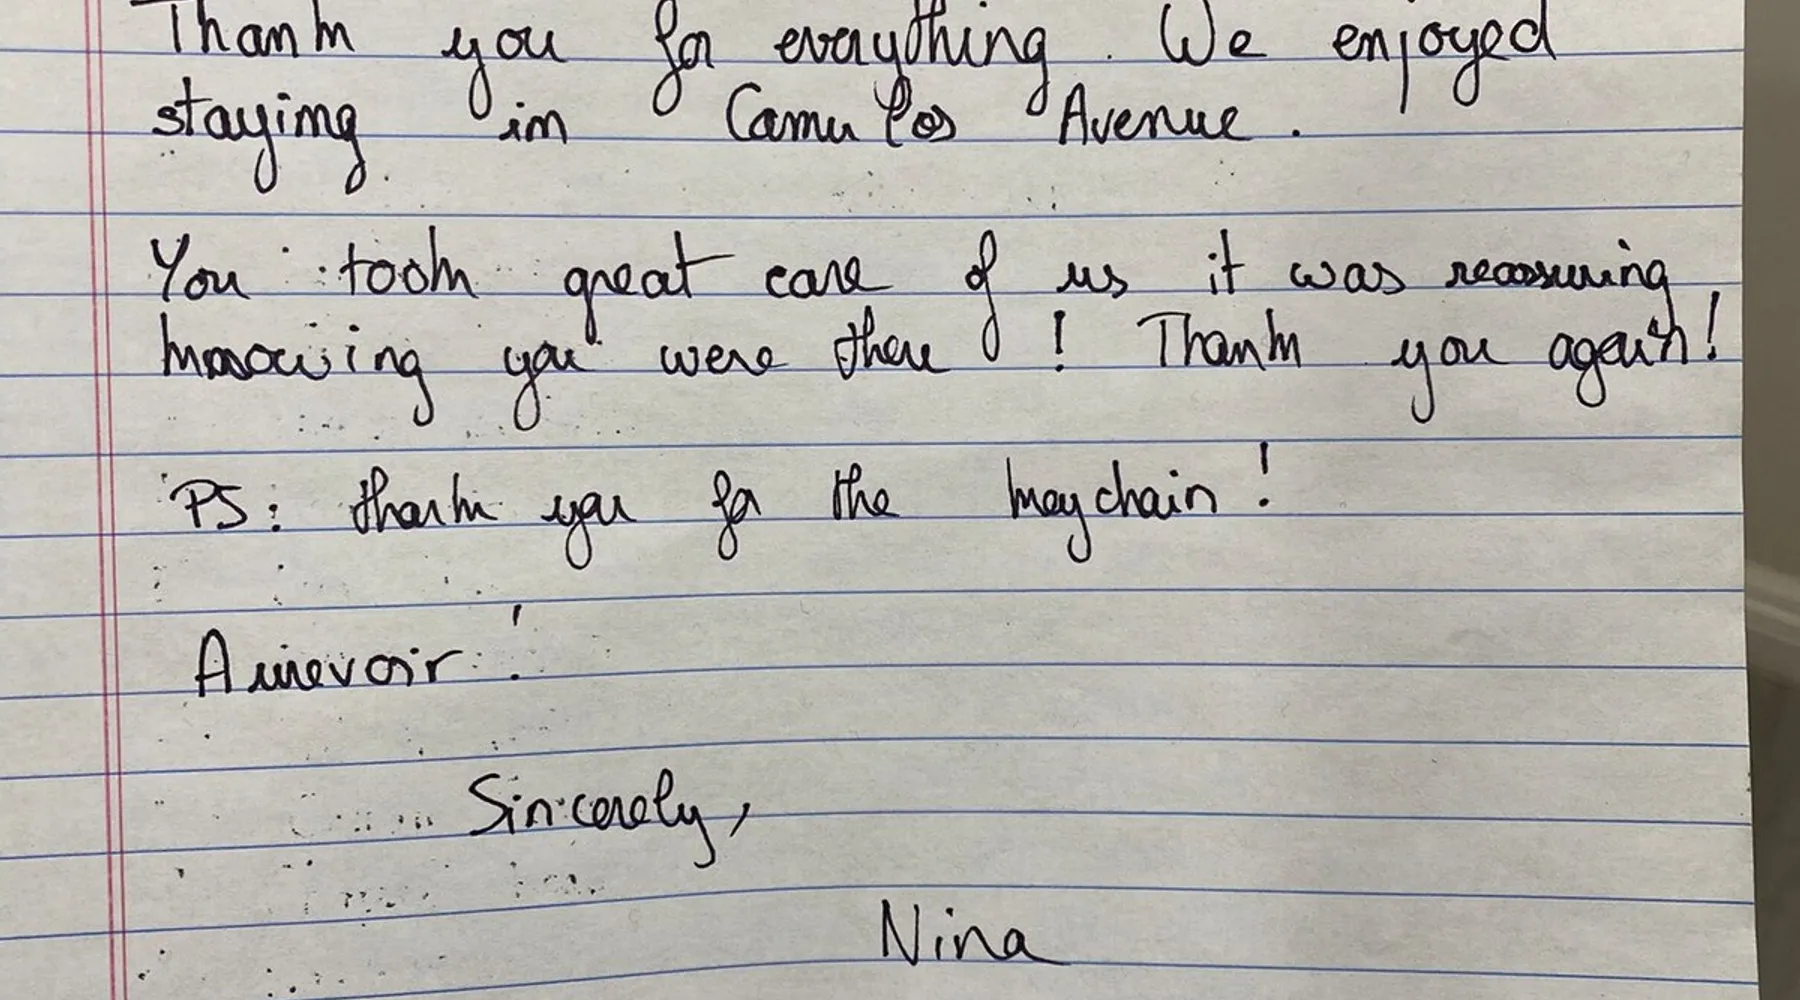 Thank you for everything. We enjoyed
staying in Camulos Avenue.
You took great care of us it was reassuring
knowing you were there ! Thank you again!
PS: thank you for the keychain !
Aurevoir !
Sincerely,
Nina